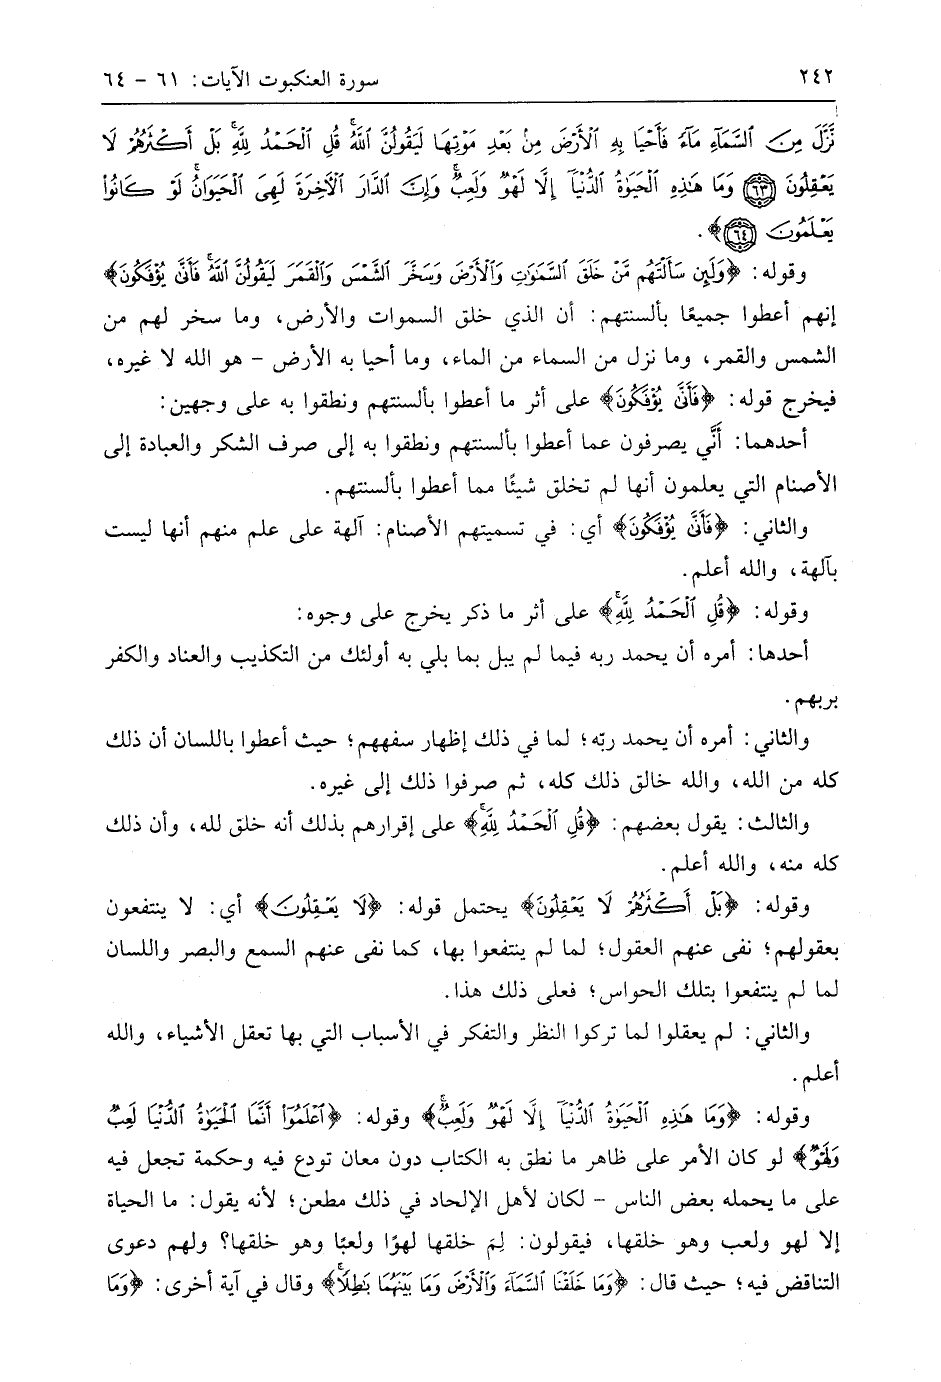 ٢٤٢ سورة العنكبوت الآيات: ٦١ - ٦٤
نَّزَّلَ مِنَ ٱلسَّمَآءِ مَآءً فَأَحْيَا بِهِ ٱلْأَرْضَ مِنۢ بَعْدِ مَوْتِهَا لَيَقُولُنَّ ٱللَّهُۚ قُلِ ٱلْحَمْدُ لِلَّهِۚ بَلْ أَكْثَرُهُمْ لَا
يَعْقِلُونَ ﴿٦٣﴾ وَمَا هَٰذِهِ ٱلْحَيَوٰةُ ٱلدُّنْيَآ إِلَّا لَهْوٌ وَلَعِبٌۚ وَإِنَّ ٱلدَّارَ ٱلْآخِرَةَ لَهِيَ ٱلْحَيَوَانُۚ لَوْ كَانُوا۟
يَعْلَمُونَ ﴿٦٤﴾﴾.
وقوله: ﴿وَلَئِن سَأَلْتَهُم مَّنْ خَلَقَ ٱلسَّمَٰوَٰتِ وَٱلْأَرْضَ وَسَخَّرَ ٱلشَّمْسَ وَٱلْقَمَرَ لَيَقُولُنَّ ٱللَّهُۖ فَأَنَّىٰ يُؤْفَكُونَ﴾
إنهم أعطوا جميعًا بألسنتهم: أن الذي خلق السموات والأرض، وما سخر لهم من
الشمس والقمر، وما نزل من السماء من الماء، وما أحيا به الأرض - هو الله لا غيره،
فيخرج قوله: ﴿فَأَنَّىٰ يُؤْفَكُونَ﴾ على أثر ما أعطوا بألسنتهم ونطقوا به على وجهين:
أحدهما: أَنَّي يصرفون عما أعطوا بألسنتهم ونطقوا به إلى صرف الشكر والعبادة إلى
الأصنام التي يعلمون أنها لم تخلق شيئًا مما أعطوا بألسنتهم.
والثاني: ﴿فَأَنَّىٰ يُؤْفَكُونَ﴾ أي: في تسميتهم الأصنام: آلهة على علم منهم أنها ليست
بآلهة، والله أعلم.
وقوله: ﴿قُلِ ٱلْحَمْدُ لِلَّهِۚ﴾ على أثر ما ذكر يخرج على وجوه:
أحدها: أمره أن يحمد ربه فيما لم يبل بما بلي به أولئك من التكذيب والعناد والكفر
بربهم.
والثاني: أمره أن يحمد ربّه؛ لما في ذلك إظهار سفههم؛ حيث أعطوا باللسان أن ذلك
كله من الله، والله خالق ذلك كله، ثم صرفوا ذلك إلى غيره.
والثالث: يقول بعضهم: ﴿قُلِ ٱلْحَمْدُ لِلَّهِۚ﴾ على إقرارهم بذلك أنه خلق لله، وأن ذلك
كله منه، والله أعلم.
وقوله: ﴿بَلْ أَكْثَرُهُمْ لَا يَعْقِلُونَ﴾ يحتمل قوله: ﴿لَا يَعْقِلُونَ﴾ أي: لا ينتفعون
بعقولهم؛ نفى عنهم العقول؛ لما لم ينتفعوا بها، كما نفى عنهم السمع والبصر واللسان
لما لم ينتفعوا بتلك الحواس؛ فعلى ذلك هذا.
والثاني: لم يعقلوا لما تركوا النظر والتفكر في الأسباب التي بها تعقل الأشياء، والله
أعلم.
وقوله: ﴿وَمَا هَٰذِهِ ٱلْحَيَوٰةُ ٱلدُّنْيَآ إِلَّا لَهْوٌ وَلَعِبٌۚ﴾ وقوله: ﴿ٱعْلَمُوٓا۟ أَنَّمَا ٱلْحَيَوٰةُ ٱلدُّنْيَا لَعِبٌ
وَلَهْوٌ﴾ لو كان الأمر على ظاهر ما نطق به الكتاب دون معان تودع فيه وحكمة تجعل فيه
على ما يحمله بعض الناس - لكان لأهل الإلحاد في ذلك مطعن؛ لأنه يقول: ما الحياة
إلا لهو ولعب وهو خلقها، فيقولون: لِمَ خلقها لهوًا ولعبًا وهو خلقها؟ ولهم دعوى
التناقض فيه؛ حيث قال: ﴿وَمَا خَلَقْنَا ٱلسَّمَآءَ وَٱلْأَرْضَ وَمَا بَيْنَهُمَا بَٰطِلًاۚ﴾ وقال في آية أخرى: ﴿وَمَا